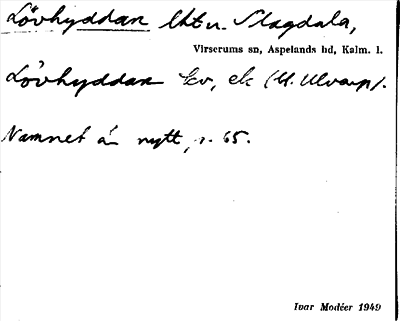 Lövhyddan lht u. Slagdala,
Virserums sn, Aspelands hd, Kalm. l.
Lövhyddan kv, ek (U. Ulvarp).
Namnet är nytt, s. 65.
Ivar Modéer 1949